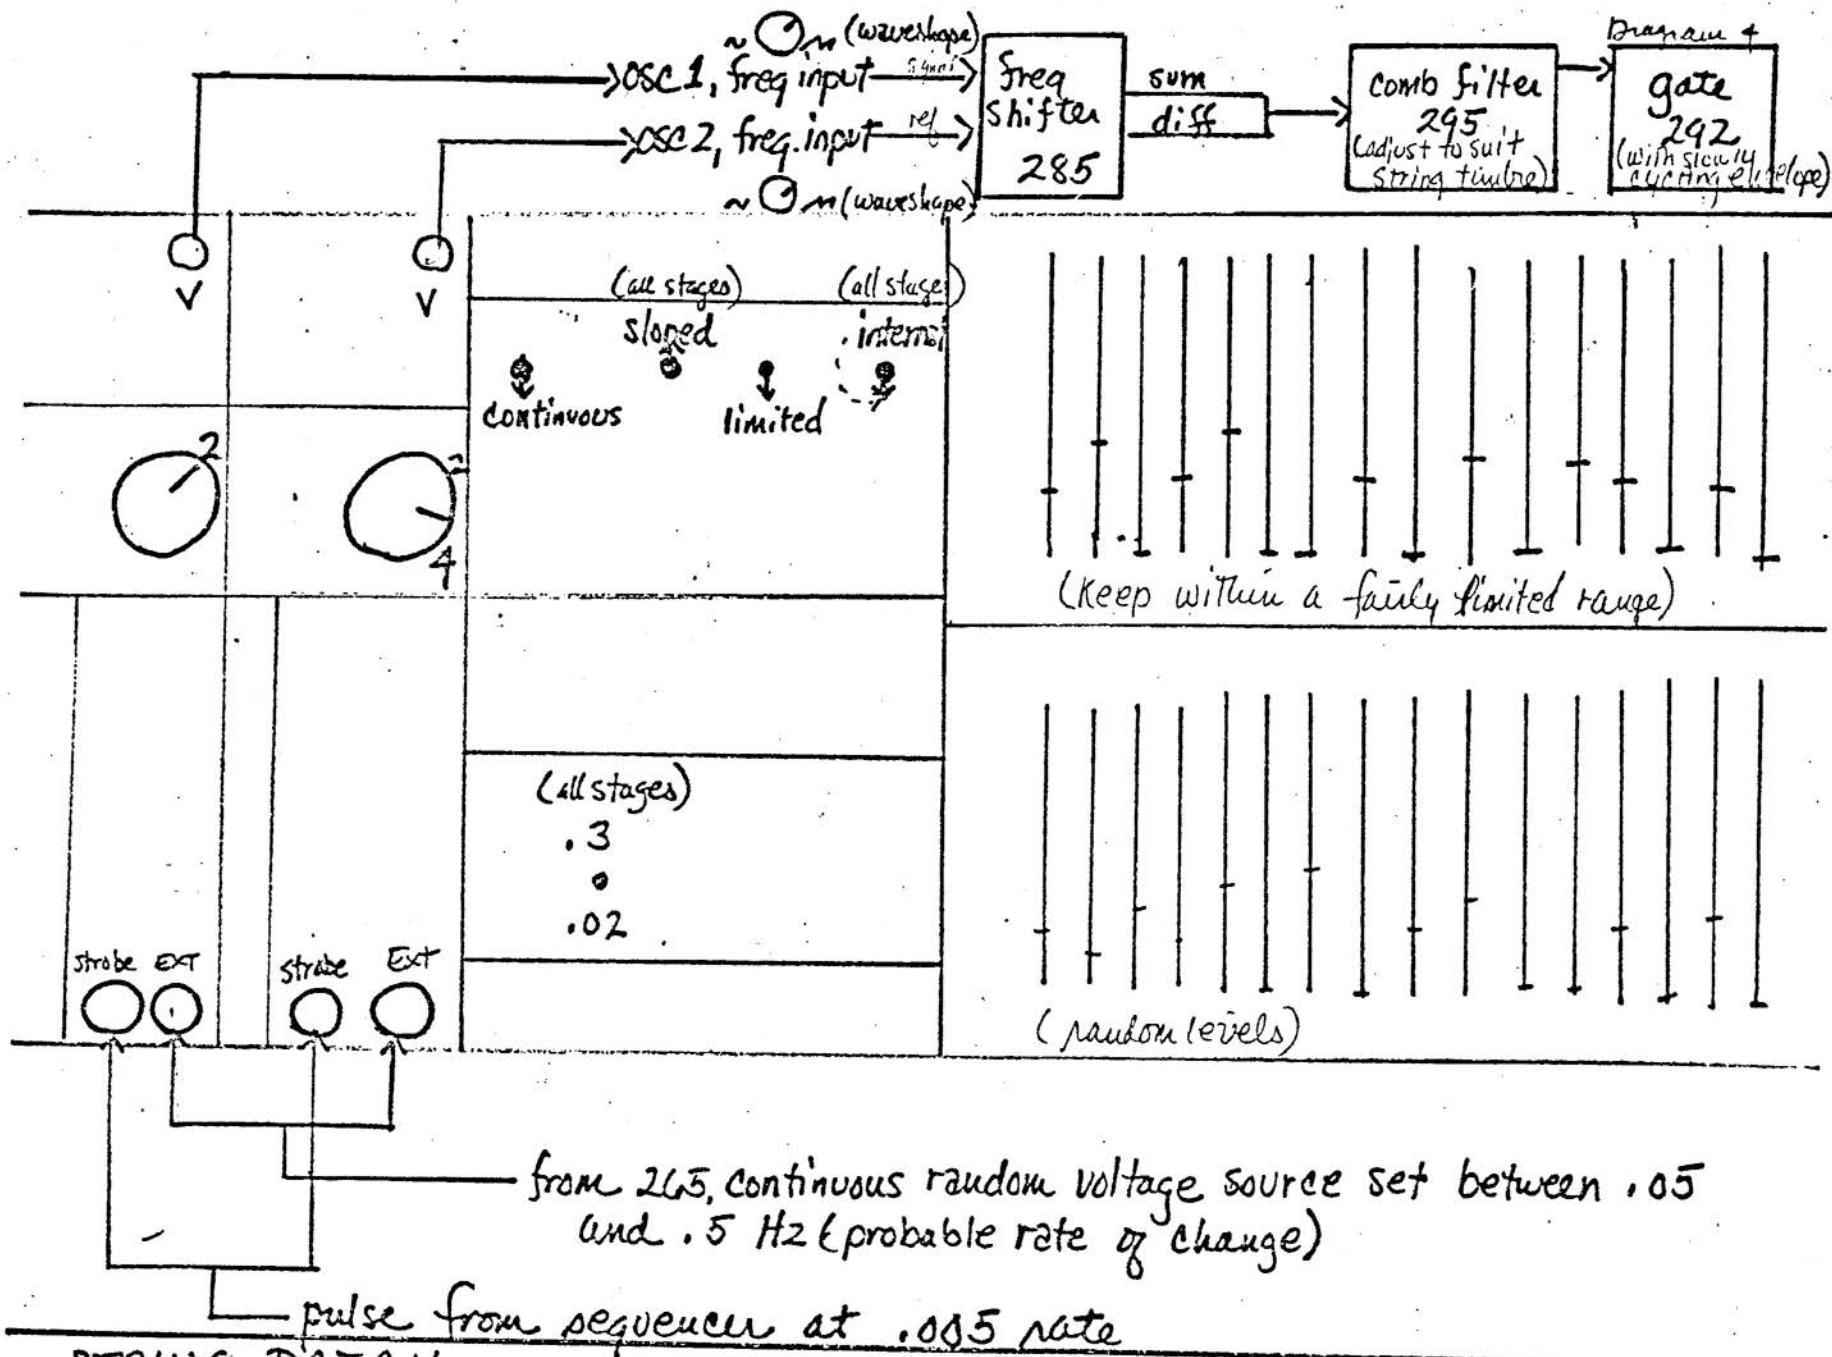 Diagram 4
~ (waveshape)
OSC 1, freq input signal
OSC 2, freq. input ref
~ (waveshape)
freq
shifter
285
sum
diff
comb filter
295
(adjust to suit
string timbre)
gate
292
(with slowly
cycling envelope)
V
V
(all stages)
(all stage)
sloped
internal
continuous
limited
2
4
(Keep within a fairly limited range)
(all stages)
.3
.02
strobe EXT
strobe EXT
(random levels)
from 265, continuous random voltage source set between .05
and .5 Hz (probable rate of change)
pulse from sequencer at .005 rate